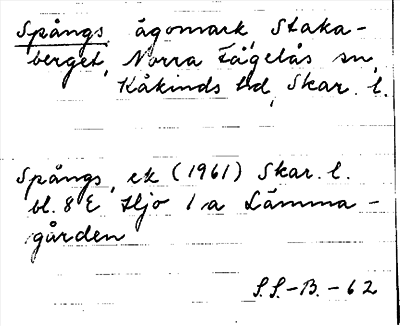 Spångs, ägomark, Staka-
berget, Norra Fågelås sn,
Kåkinds hd, Skar. l.
Spångs, ek (1961) Skar. l.
bl. 8 E Hjo 1 a Lämma-
gården
S.S.-B.-62